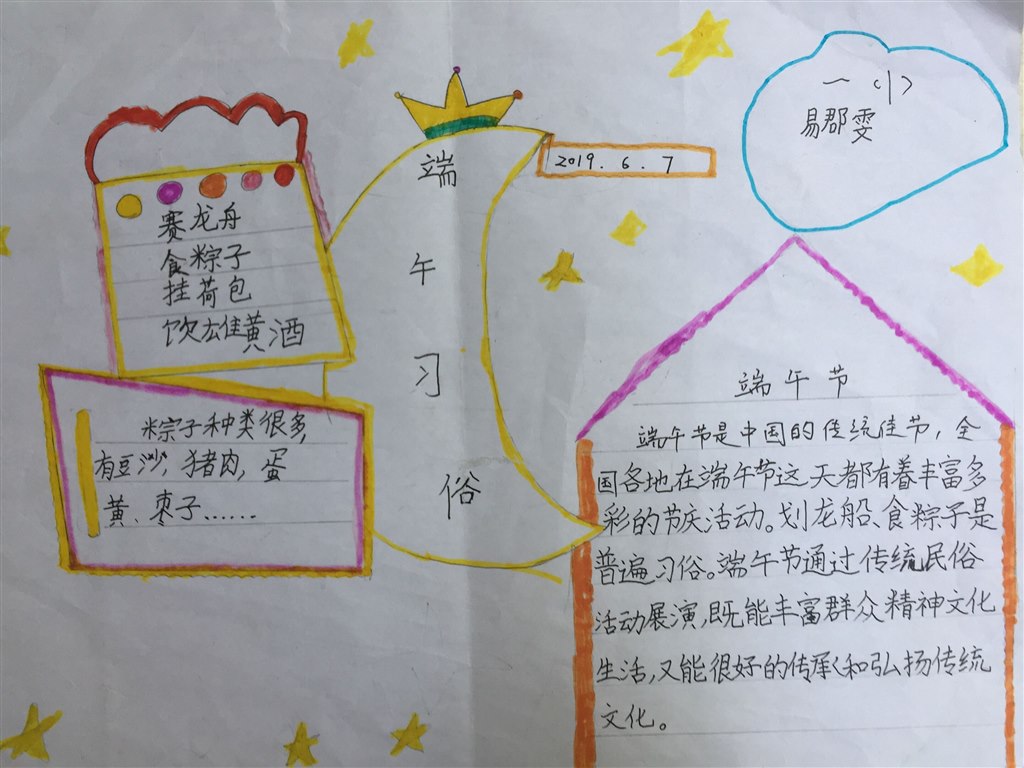 端午习俗
2019.6.7
一(1)
易郡雯
赛龙舟
食粽子
挂荷包
饮雄黄酒
粽子种类很多,
有豆沙,猪肉,蛋
黄、枣子……
端午节
端午节是中国的传统佳节,全
国各地在端午节这天都有着丰富多
彩的节庆活动。划龙船、食粽子是
普遍习俗。端午节通过传统民俗
活动展演,既能丰富群众精神文化
生活,又能很好的传承和弘扬传统
文化。